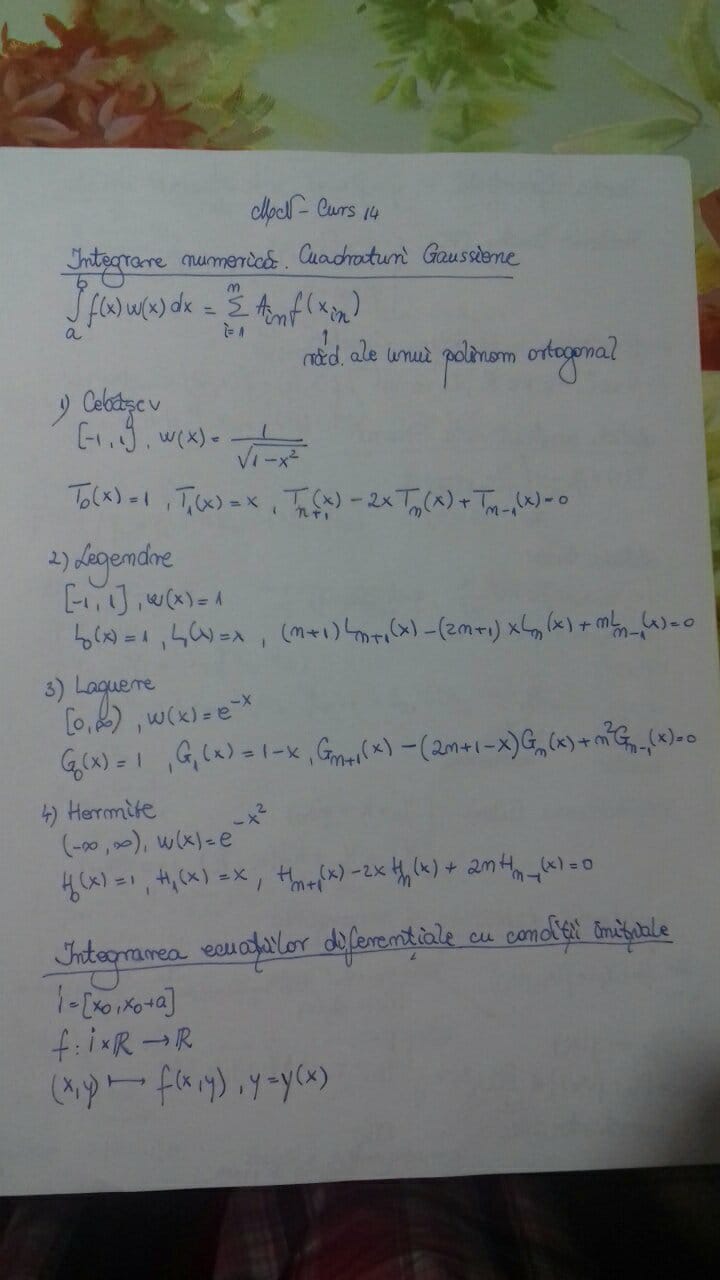 MN - Curs 14
Integrare numerică. Cuadraturi Gaussiene
∫_a^b f(x)w(x)dx = Σ_{i=1}^{n} A_{in} f(x_{in})
↑
răd. ale unui polinom ortogonal
1) Cebâșev
[-1, 1], w(x) = 1/√(1-x²)
T₀(x) = 1, T₁(x) = x, T_{n+1}(x) - 2xT_n(x) + T_{n-1}(x) = 0
2) Legendre
[-1, 1], w(x) = 1
L₀(x) = 1, L₁(x) = x, (n+1)L_{n+1}(x) - (2n+1)xL_n(x) + nL_{n-1}(x) = 0
3) Laguerre
[0, ∞), w(x) = e^{-x}
G₀(x) = 1, G₁(x) = 1-x, G_{n+1}(x) - (2n+1-x)G_n(x) + n²G_{n-1}(x) = 0
4) Hermite
(-∞, ∞), w(x) = e^{-x²}
H₀(x) = 1, H₁(x) = x, H_{n+1}(x) - 2xH_n(x) + 2nH_{n-1}(x) = 0
Integrarea ecuațiilor diferențiale cu condiții inițiale
i = [x₀, x₀+a]
f : i × ℝ → ℝ
(x,y) ⟼ f(x,y), y = y(x)